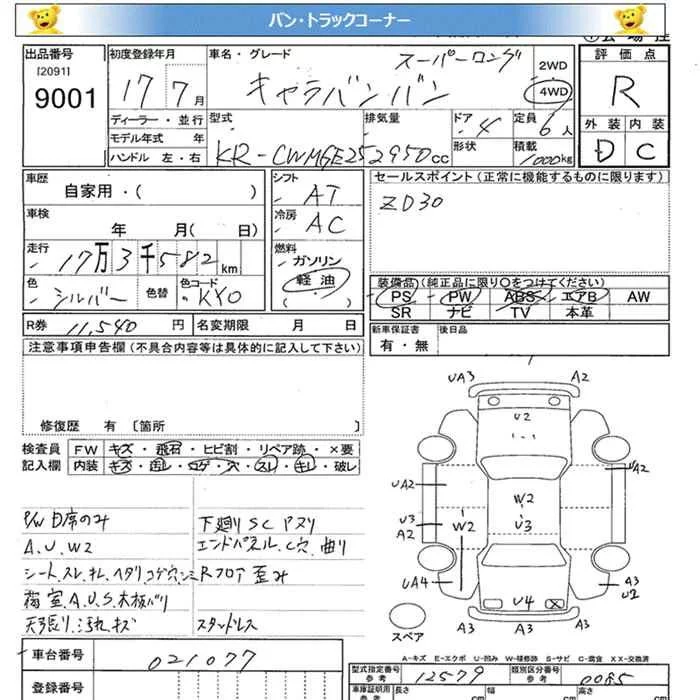 バン・トラックコーナー
出品番号
[2091]
9001
初度登録年月
17 7月
車名・グレード
スーパーロング
キャラバンバン
2WD
4WD
評価点
R
外装 内装
D C
ディーラー・並行
モデル年式 年
ハンドル 左・右
型式
KR-CWMGE25
排気量
2950cc
ドア
4
形状
定員
6人
積載
1000kg
車歴
自家用・( )
シフト
AT
セールスポイント(正常に機能するものに限ります)
ZD30
車検
年 月( 日)
冷房
AC
走行
17万3千582km
燃料
ガソリン
軽油
( )
色
シルバー
色替
色コード
KY0
装備品)(純正品に限り○をつけてください)
PS PW ABS エアB AW
SR ナビ TV 本革
R券 11,540円
名変期限 月 日
新車保証書
有・無
後日品
注意事項申告欄(不具合内容等は具体的に記入して下さい)
修復歴 有 [箇所 ]
検査員
記入欄
FW キズ・飛石・ヒビ割・リペア跡・×要
内装 キズ・汚レ・コゲ・穴・スレ・キレ・破レ
P/W D席のみ
A.U.W2
下廻りSCアスリ
エンドパネル、C穴曲り
シート、スレ、キレ、ヘタリ、コゲ穴、シミ
Rフロア歪み
荷室、A.U.S.木板バリ
天張り、汚れ、キズ
スタッドレス
UA3 A2
U2
UA2
UA2
U3
A2
W2
W2
U3
UA4
A3
U2
U4
A3 A3
スペア
A-キズ E-エクボ U-凹み W-補修跡 S-サビ C-腐食 XX-交換済
車台番号
021077
登録番号
型式指定番号
参考
12579
類別区分番号
参考
0085
車庫証明用
参考
長さ
cm
幅
cm
高さ
cm